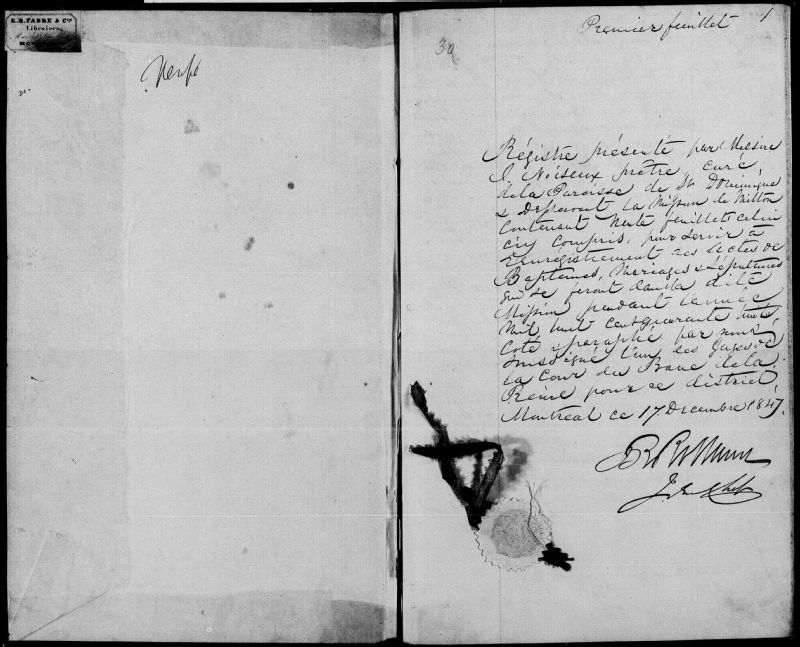 E.R. FABRE & Cie
Libraires,
Premier feuillet
1
30
Régistre présenté par Messire
Noiseux prêtre, curé
de la Paroisse de St Dominique
& Desservant la Mission de Milton
Contenant trente feuillets celui
cy Compris, pour servir à
l'enrégistrement des actes de
Baptemes, Mariages & Sépultures
qui se feront dans la dite
Mission pendant l'année
mil huit cent quarante huit,
Coté & paraphé par nous
soussigné l'un des Juges de
la Cour du Banc de la
Reine pour ce district
Montreal ce 17 Decembre 1847.